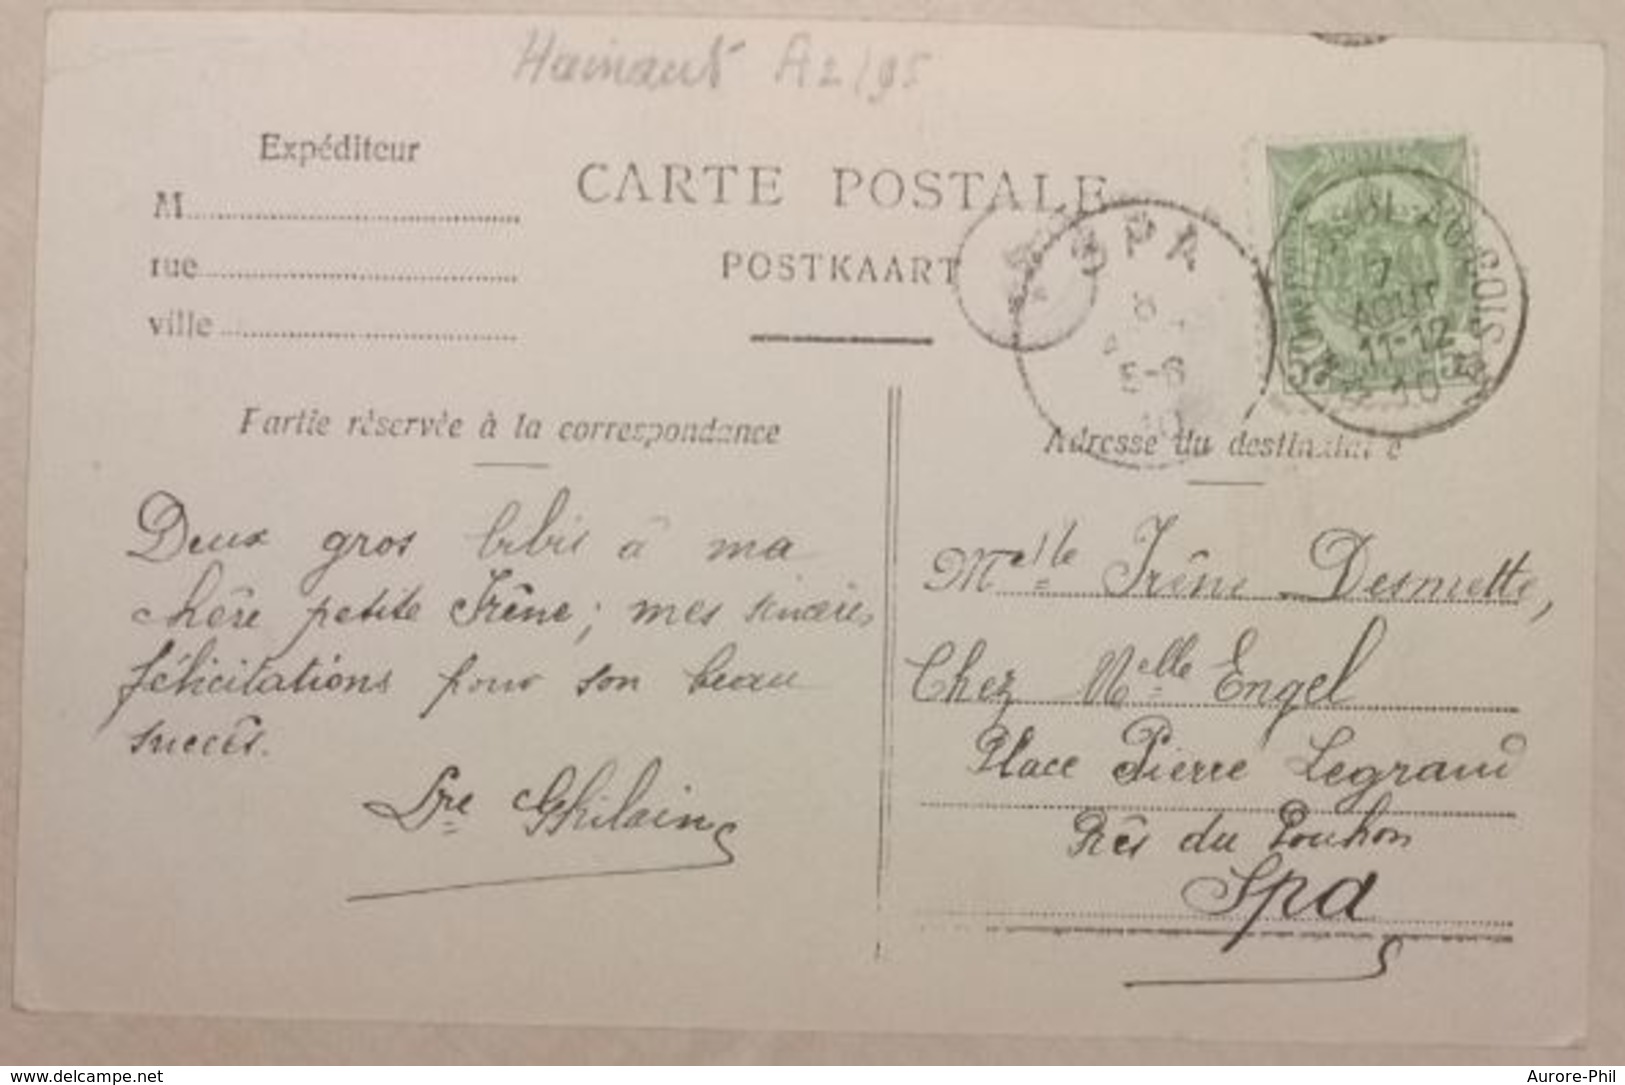 Hainaut A2/95
Expéditeur
M
rue
ville
CARTE POSTALE
POSTKAART
SPA
8
5-6
10
7
AOUT
11-12
10
Partie réservée à la correspondance
Adresse du destinataire
Deux gros bibis à ma
chère petite Irêne; mes sincères
félicitations pour son beau
succès.
Dre Ghilain
Melle Irêne Desmette,
Chez Melle Engel
Place Pierre Legrand
Près du Pouhon
Spa
www.delcampe.net
Aurore-Phil